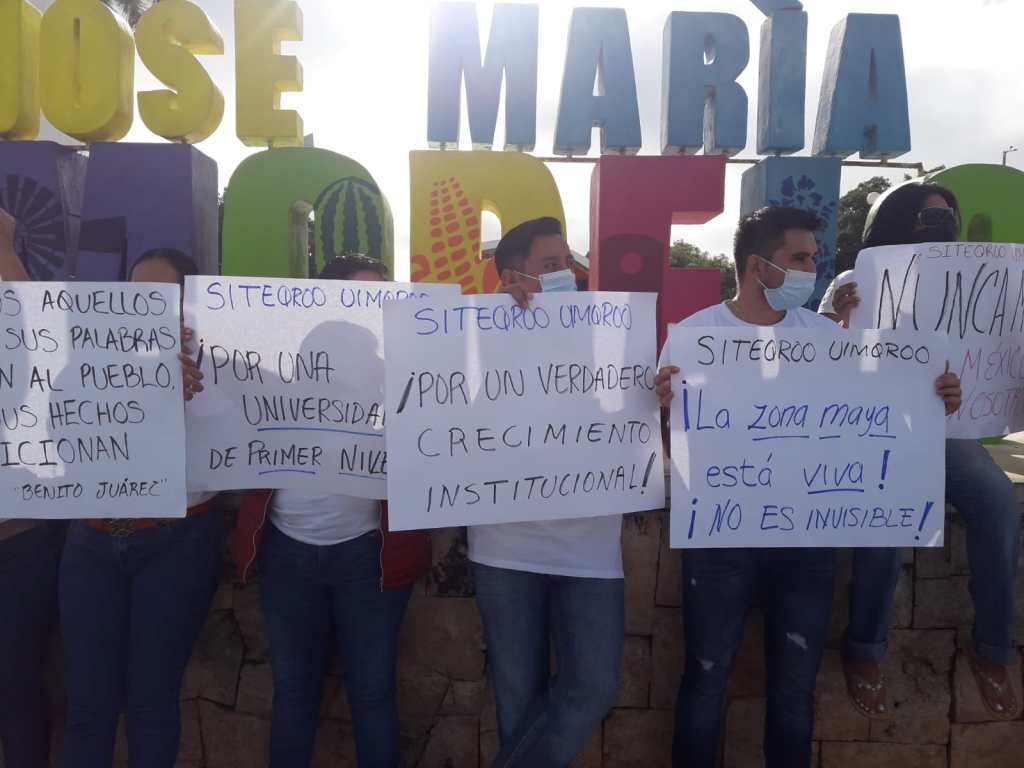 JOSE MARÍA
MORELO
AQUELLOS
SUS PALABRAS
AL PUEBLO,
SUS HECHOS
ICIONAN
"BENITO JUÁREZ"
SITEQROO UIMQROO
¡POR UNA
UNIVERSIDA
DE PRIMER NIVE
SITEQROO UIMQROO
¡POR UN VERDADERO
CRECIMIENTO
INSTITUCIONAL!
SITEQROO UIMQROO
¡La zona maya
está viva!
¡NO ES INVISIBLE!
SITEQROO
NUNCA
MÉXICO